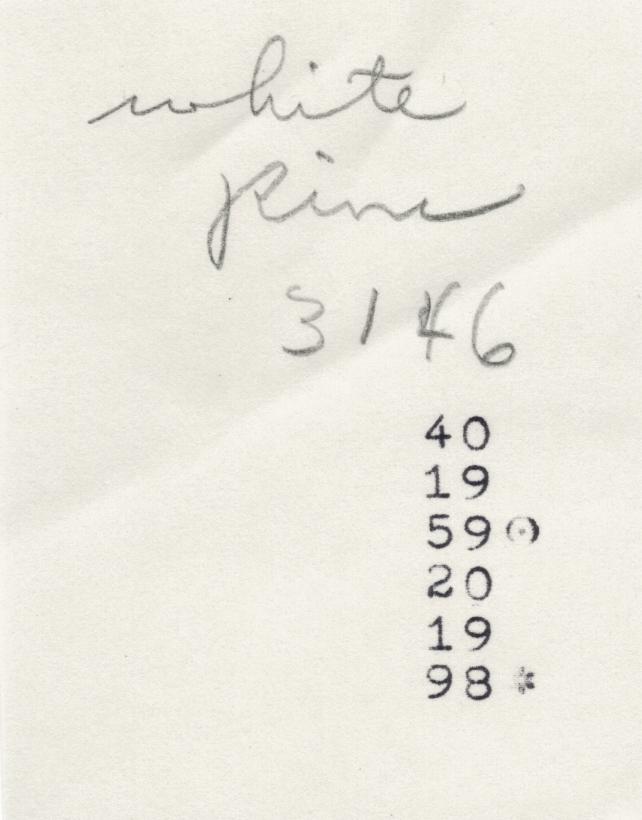 white
pine
3146
40
19
59 ⊙
20
19
98 *